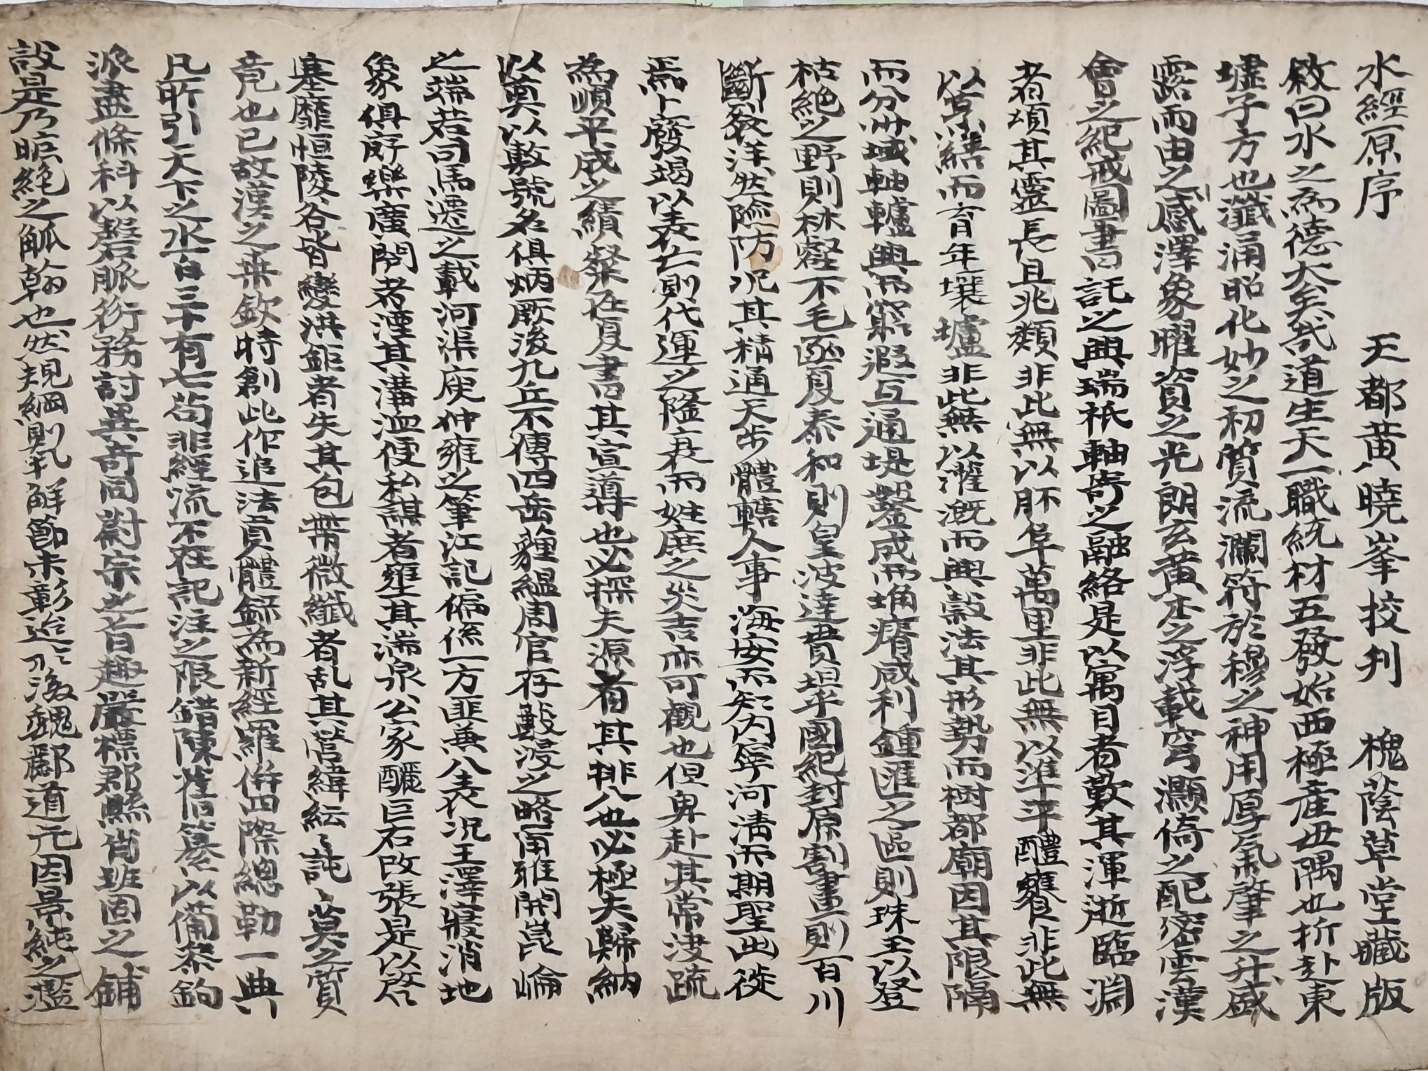 水經原序 天都黃曉峯挍刋 槐蔭草堂藏版
敘曰水之爲德大矣哉道生天一職統材五發始西極産丑隅也折赴東
墟子方也瀸涌昭化妙之初質流瀾符於穆之神用厚氣肇之升盛
露而由之感澤象曜資之光朗玄黃本之浮載穹灝倚之配密雲漢
會之紀戒圖書託之興瑞祇軸寄之融絡是以寓目者歎其渾逝臨淵
者頌其靈長且兆類非此無以胚阜萬里非此無以準平醴饔非此無
以烹繕而育年壤壚非此無以灌漑而興穀法其形勢而樹都廟因其限隔
而分州域軸轤興而窮遐互通堤鑿成而埆瘠咸利鍾匯之區則珠玉以登
枯絶之野則林壑不毛函夏泰和則皇波達貫坦乎國紀封原割畫則百川
斷裂洋然險防况其精通天步體轄人事海安而知内寧河清而期聖出徙
焉卜發竭以表亡則代運之隆衰而姓庶之災吉亦可觀也但卑赴其常浚疏
為順平成之績粲在夏書其宣導也必探夫源者其排入也必極夫歸納
以奠以敷號名俱炳厥後九丘不傳四岳龐緼周官存數浸之略甫雅開崑崘
之端若司馬遷之載河渠庚仲雍之筆江記偏係一方匪兼八表伏况王澤寢消地
象俱斁樂廣開者湮其溝洫便私謀者壅其湍泉公家釃巨石改張是以啓
塞靡恒陵谷皆變洪鉅者失其包帶微纖者乱其營緯紜訛莫之質
竟也已故漢之桒欽特創此作追法貢體録為新經羅併四際總勒一典
凡所引天下之水百三十有七苟非經流不在記注之限錯陳舊纂以備黎鉤
派盡條科以磬脈衍務討異奇同尉宗之旨趣嚴標郡縣肖班固之鋪
設是乃眇絶之觚翰也然規綱則乳鮮節未彰迨後魏酈道元因景純之濫